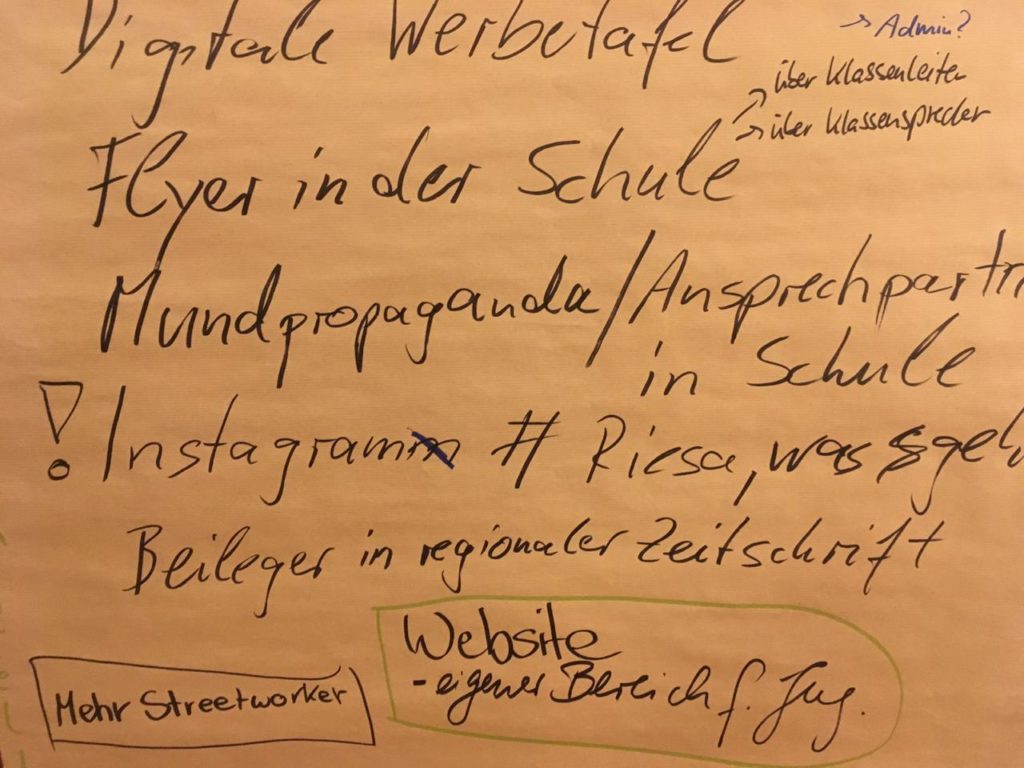 Digitale Werbetafel
→ Admin?
→ über Klassenleiter
→ über Klassensprecher
Flyer in der Schule
Mundpropaganda / Ansprechpartn
in Schule
! Instagram # Riesa, was geh
Beileger in regionaler Zeitschrift
Website
- eigener Bereich f. Jug.
Mehr Streetworker